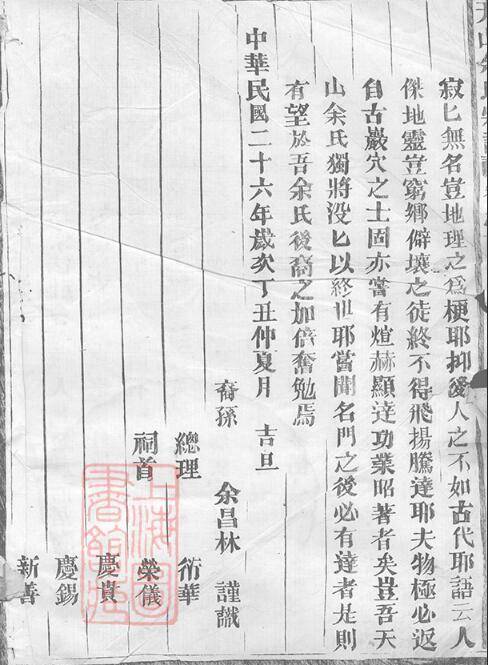 寂匕無名豈地理之爲梗耶抑後人之不如古代耶語云人
傑地靈豈窮鄉僻壤之徒終不得飛揚騰達耶夫物極必返
自古巖穴之士固亦嘗有煊赫顯達功業昭著者矣豈吾天
山余氏獨將没匕以終世耶嘗聞名門之後必有達者是則
有望於吾余氏後裔之加倍奮勉焉
中華民國二十六年歲次丁丑仲夏月 吉旦
裔孫 余昌林 謹識
總理 華
祠首 榮儀
慶貴
慶錫
新善
上海圖書館藏